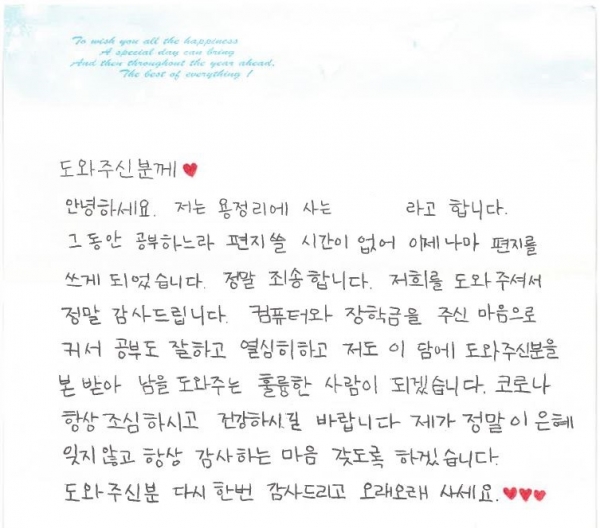 To wish you all the happiness
A special day can bring
And then throughout the year ahead.
The best of everything !
도와주신분께 ♥
안녕하세요. 저는 용정리에 사는 라고 합니다.
그동안 공부하느라 편지쓸 시간이 없어 이제나마 편지를
쓰게 되었습니다. 정말 죄송합니다. 저희를 도와주셔서
정말 감사드립니다. 컴퓨터와 장학금을 주신 마음으로
커서 공부도 잘하고 열심히하고 저도 이 담에 도와주신분을
본 받아 남을 도와주는 훌륭한 사람이 되겠습니다. 코로나
항상 조심하시고 건강하시길 바랍니다 제가 정말 이 은혜
잊지않고 항상 감사하는 마음 갖도록 하겠습니다.
도와주신분 다시 한번 감사드리고 오래오래 사세요. ♥♥♥